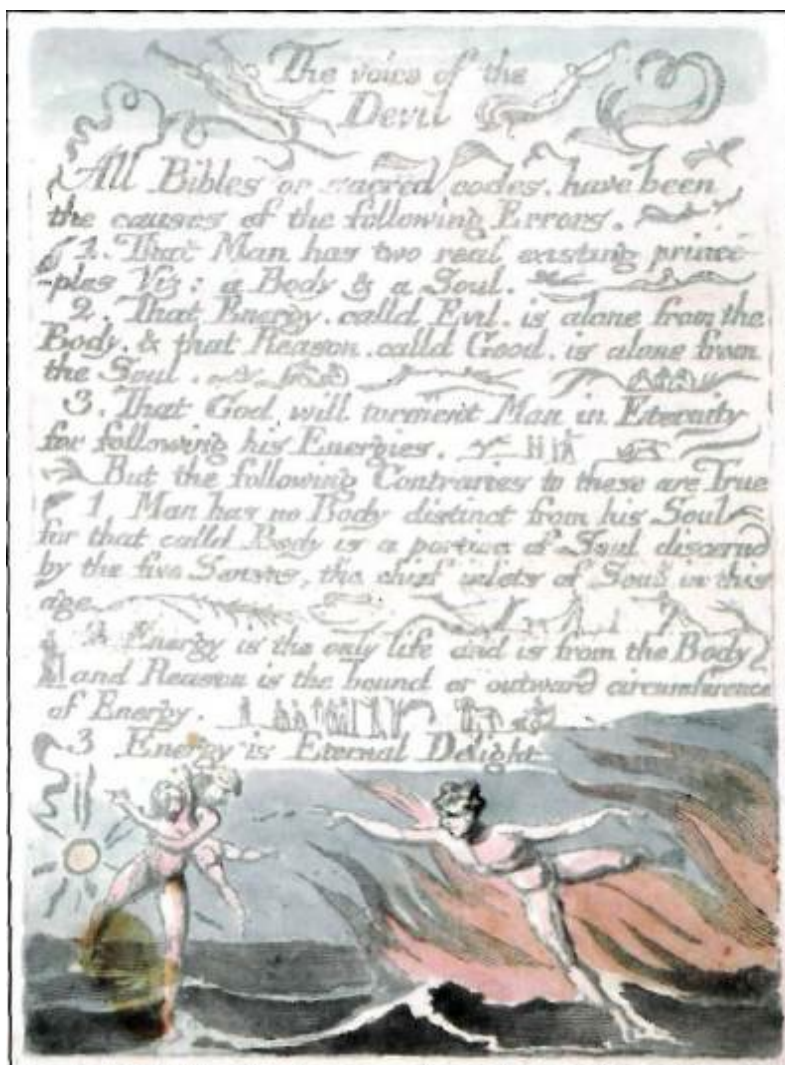 The voice of the
Devil
All Bibles or sacred codes. have been
the causes of the following Errors.
1. That Man has two real existing princi-
-ples Viz: a Body & a Soul.
2. That Energy. calld Evil. is alone from the
Body. & that Reason. calld Good. is alone from
the Soul.
3. That God will torment Man in Eternity
for following his Energies.
But the following Contraries to these are True
1 Man has no Body distinct from his Soul
for that calld Body is a portion of Soul discernd
by the five Senses, the chief inlets of Soul in this
age
2. Energy is the only life and is from the Body
and Reason is the bound or outward circumference
of Energy.
3 Energy is Eternal Delight